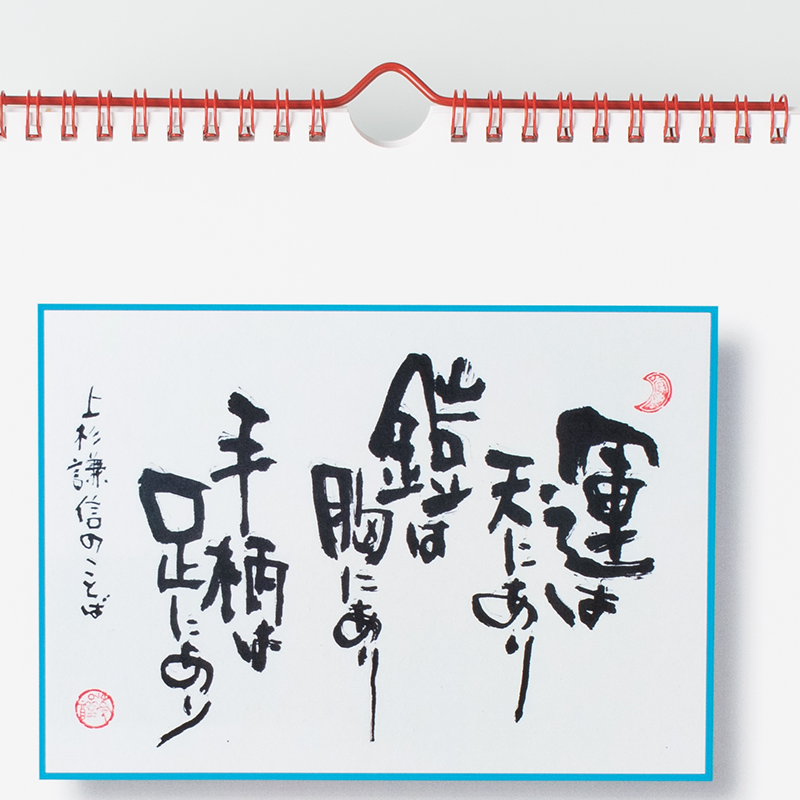 運は
天にあり
鎧は
胸にあり
手柄は
足にあり
上杉謙信のことば